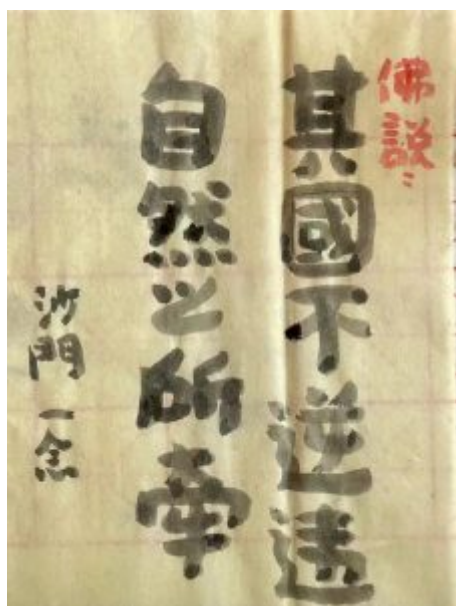 佛説〻
其國不逆違
自然之所牽
沙門一念